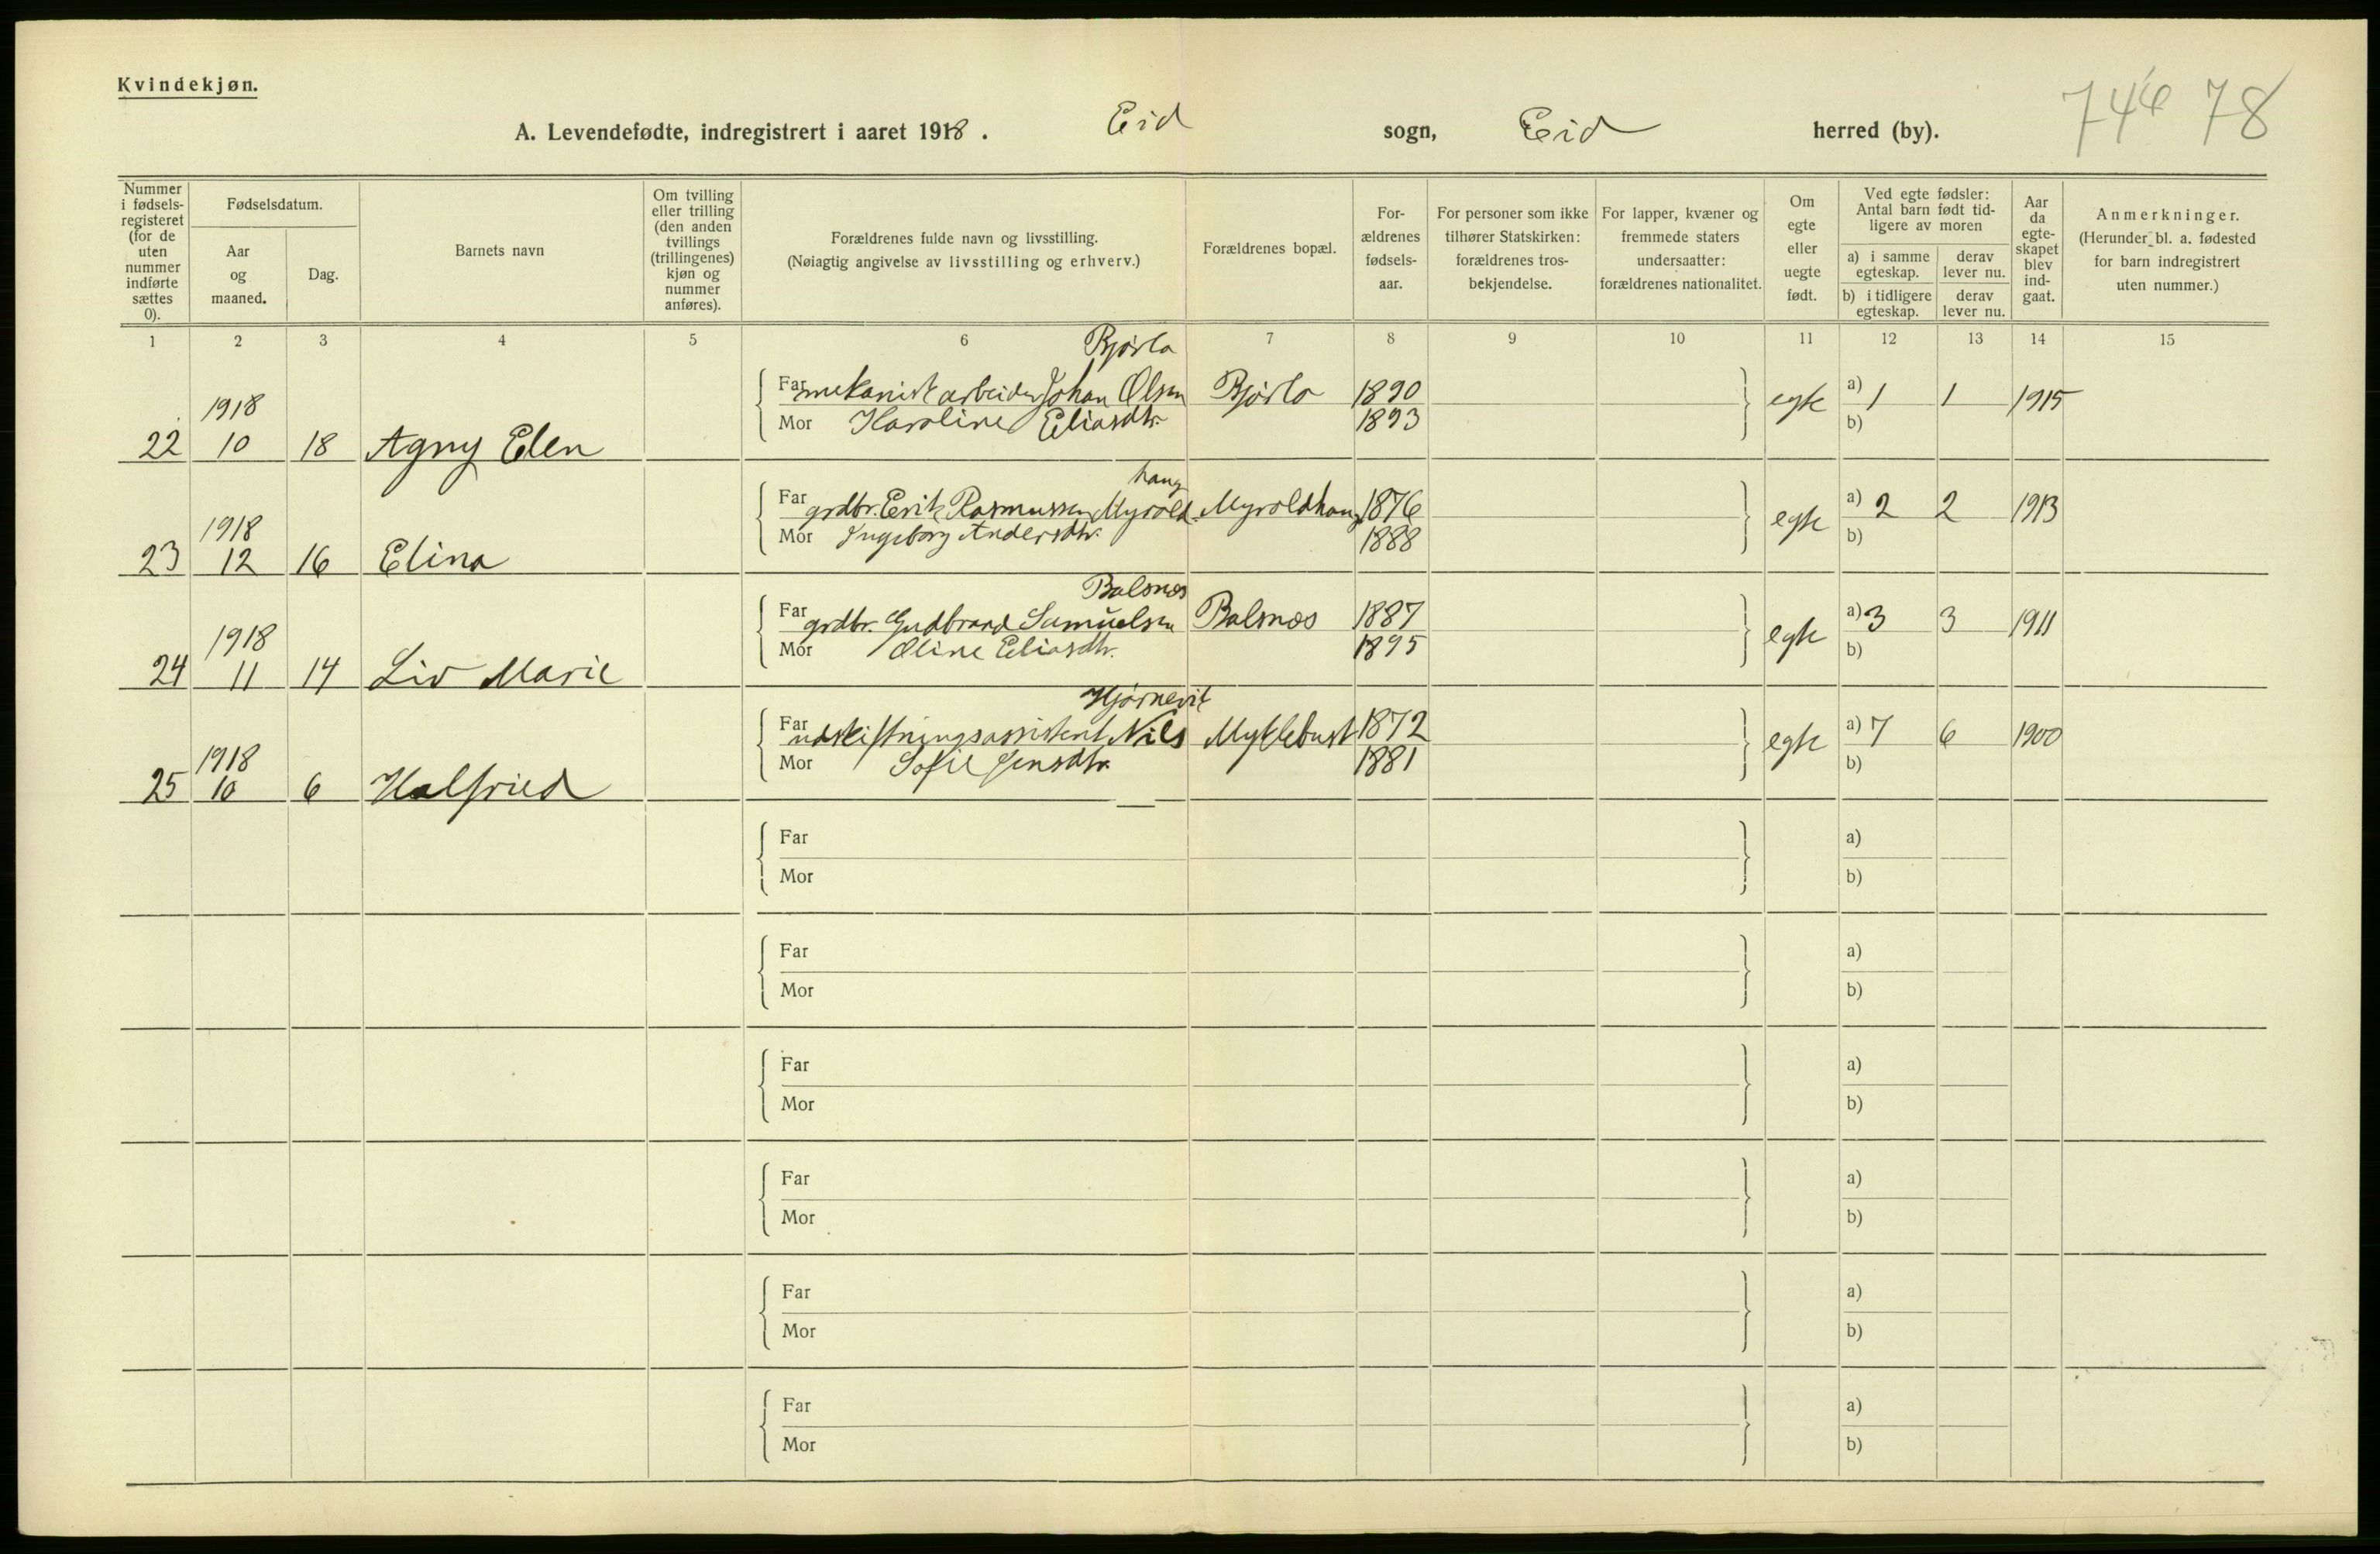 Kvindekjøn.
A. Levendefødte, indregistrert i aaret 1918. Eid sogn, Eid herred (by). 746 78
Nummer i fødsels-registeret (for de uten nummer indførte sættes 0).
Fødselsdatum.
Aar og maaned.
Dag.
Barnets navn
Om tvilling eller trilling (den anden tvillings (trillingenes) kjøn og nummer anføres).
Forældrenes fulde navn og livsstilling.
(Nøiagtig angivelse av livsstilling og erhverv.)
Forældrenes bopæl.
For-ældrenes fødsels-aar.
For personer som ikke tilhører Statskirken: forældrenes tros-bekjendelse.
For lapper, kvæner og fremmede staters undersaatter: forældrenes nationalitet.
Om egte eller uegte født.
Ved egte fødsler: Antal barn født tid-ligere av moren
a) i samme egteskap.
derav lever nu.
b) i tidligere egteskap.
derav lever nu.
Aar da egte-skapet blev ind-gaat.
Anmerkninger.
(Herunder bl. a. fødested for barn indregistrert uten nummer.)
1 2 3 4 5 6 7 8 9 10 11 12 13 14 15
Bjørlo
Far mekanisk arbeider Johan Olsen Bjørlo 1890 egte a) 1 1 1915
1918
Mor Karoline Eliasdtr. 1893 b)
22 10 18 Agny Elen
haug
Far grdbr. Erik Rasmussen Myrold- Myroldhaug 1876 egte a) 2 2 1913
1918
Mor Ingeborg Andersdtr. 1888 b)
23 12 16 Elina
Balsnes
Far grdbr. Gudbrand Samuelsen Balsnes 1887 egte a) 3 3 1911
1918
Mor Oline Eliasdtr. 1895 b)
24 11 14 Liv Marie
Hjørnevik
Far udskiftningsassistent Nils Myklebust 1872 egte a) 7 6 1900
1918
Mor Sofie Jensdtr. 1881 b)
25 10 6 Halfried
Far a)
Mor b)
Far a)
Mor b)
Far a)
Mor b)
Far a)
Mor b)
Far a)
Mor b)
Far a)
Mor b)